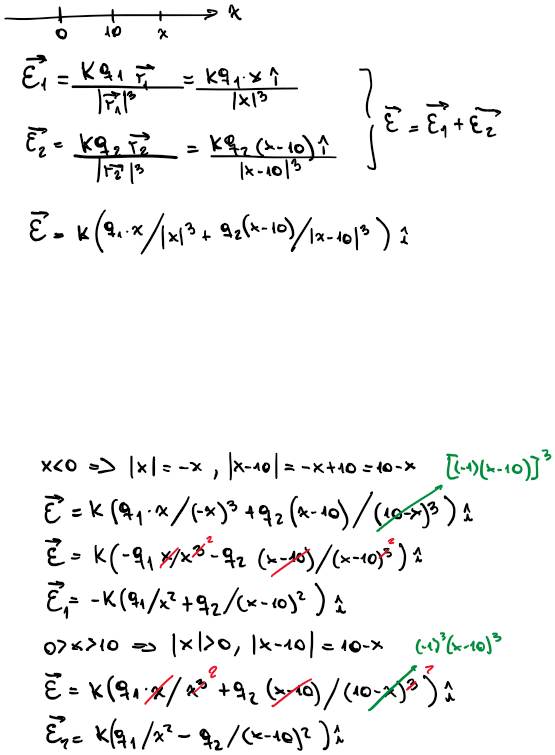 x
0 10 x
ε⃗₁ = kq₁ r⃗₁ / |r⃗₁|³ = kq₁·x î / |x|³
ε⃗ = ε⃗₁ + ε⃗₂
ε⃗₂ = kq₂ r⃗₂ / |r⃗₂|³ = kq₂ (x-10) î / |x-10|³
ε⃗ = k(q₁·x/|x|³ + q₂(x-10)/|x-10|³) î
x<0 => |x| = -x , |x-10| = -x+10 = 10-x [(-1)(x-10)]³
ε⃗ = k(q₁·x/(-x)³ + q₂(x-10)/(10-x)³) î
ε⃗ = k(-q₁ x/x³ ² - q₂ (x-10)/(x-10)³ ²) î
ε⃗₁ = -k(q₁/x² + q₂/(x-10)²) î
0>x>10 => |x|>0, |x-10| = 10-x (-1)³(x-10)³
ε⃗ = k(q₁·x/x³ ² + q₂(x-10)/(10-x)³ ²) î
ε⃗₂ = k(q₁/x² - q₂/(x-10)²) î